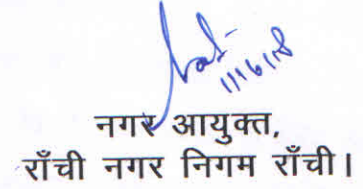 11/6/18
नगर आयुक्त,
राँची नगर निगम राँची।